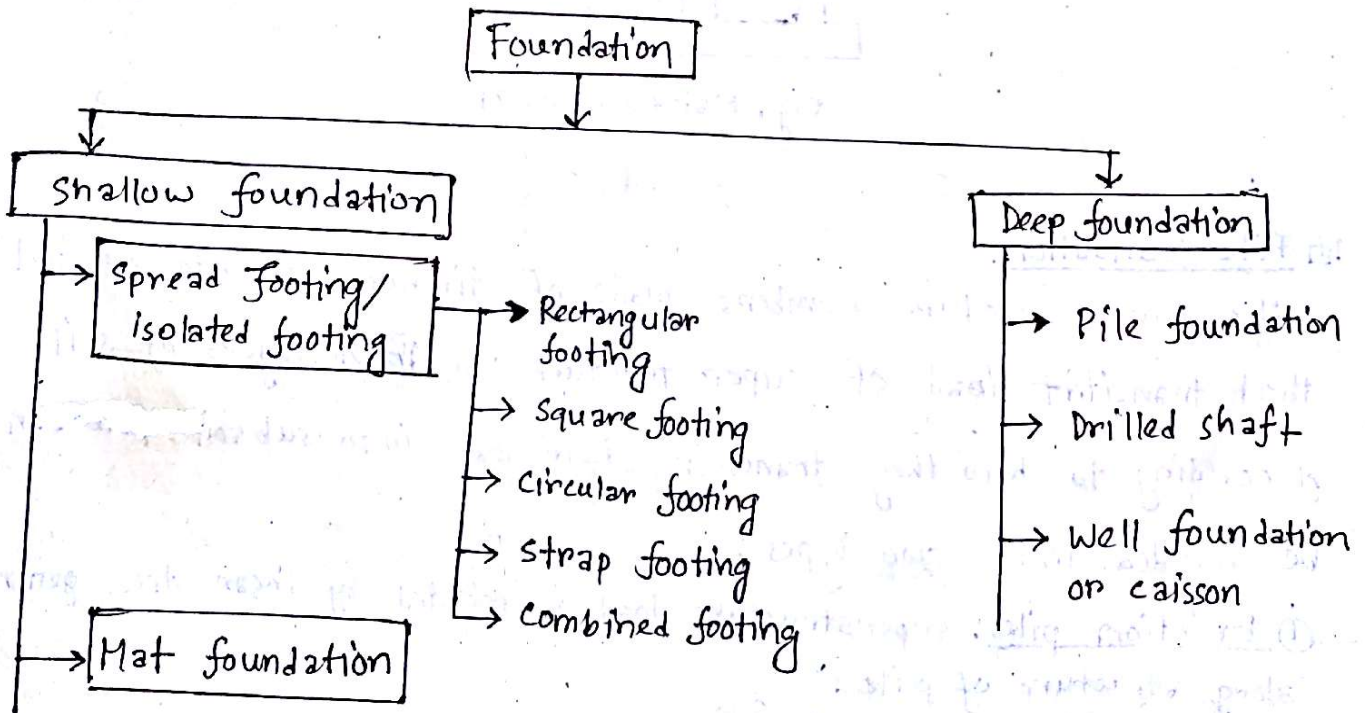 Foundation
Shallow foundation
Spread footing/
isolated footing
Rectangular
footing
Square footing
Circular footing
Strap footing
Combined footing.
Mat foundation
Deep foundation
Pile foundation
Drilled shaft
Well foundation
or caisson